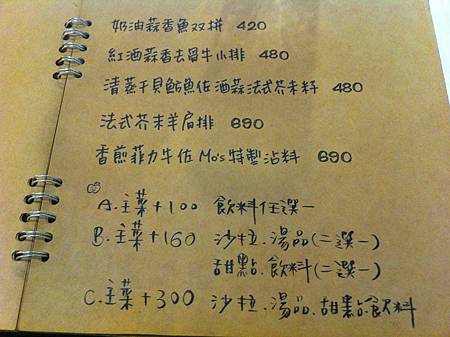 奶油蒜香魚双拼 420
紅酒蒜香去骨牛小排 480
清蒸干貝鮑魚佐酒蒜法式芥末籽 480
法式芥末羊肩排 690
香煎菲力牛佐Mo's特製沾料 690
A.主菜+100 飲料任選一
B.主菜+160 沙拉.湯品(二選一)
甜點.飲料(二選一)
C.主菜+300 沙拉.湯品.甜點.飲料